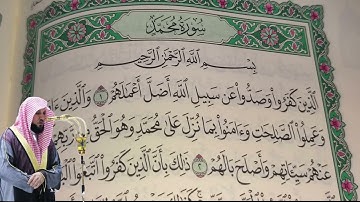 سُورَةُ مُحَمَّد
بِسْمِ ٱللَّهِ ٱلرَّحْمَٰنِ ٱلرَّحِيمِ
ٱلَّذِينَ كَفَرُوا۟ وَصَدُّوا۟ عَن سَبِيلِ ٱللَّهِ أَضَلَّ أَعْمَٰلَهُمْ ١ وَٱلَّذِينَ ءَا
وَعَمِلُوا۟ ٱلصَّٰلِحَٰتِ وَءَامَنُوا۟ بِمَا نُزِّلَ عَلَىٰ مُحَمَّدٍ وَهُوَ ٱلْحَقُّ مِن رَّبِّهِمْ
عَنْهُمْ سَيِّـَٔاتِهِمْ وَأَصْلَحَ بَالَهُمْ ٢ ذَٰلِكَ بِأَنَّ ٱلَّذِينَ كَفَرُوا۟ ٱتَّبَعُوا۟